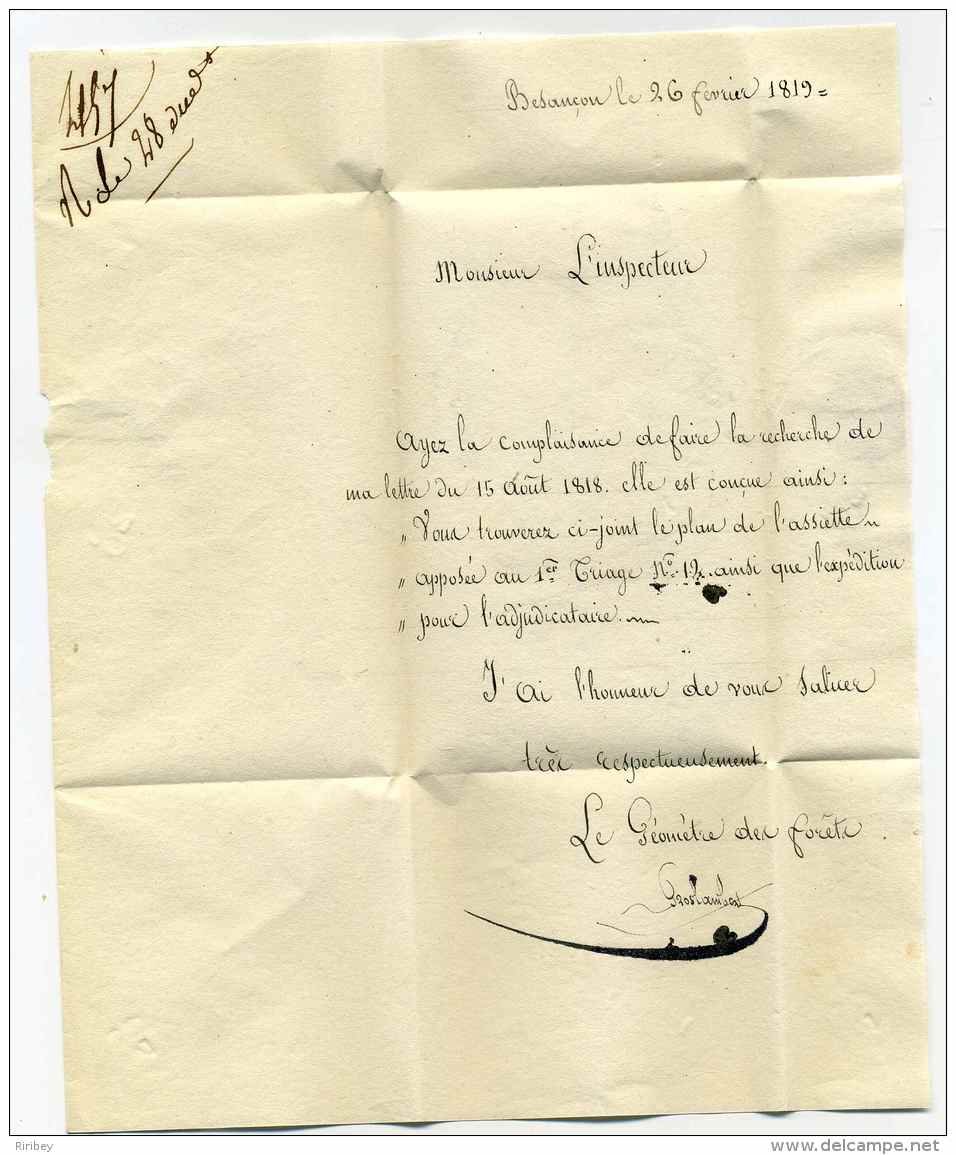 457
R le 28 dud
Besançon le 26 fevrier 1819 =
Monsieur L'inspecteur
Ayez la complaisance de faire la recherche de
ma lettre du 15 Août 1818. elle est conçue ainsi :
„ Vous trouverez ci-joint le plan de l'assiette
„ apposée au 1er Triage No. 12. ainsi que l'expédition
„ pour l'adjudicataire.
J'ai l'honneur de vous saluer
très respectueusement.
Le Géomètre des forêts
Groslambert
Ribey
www.delcampe.net